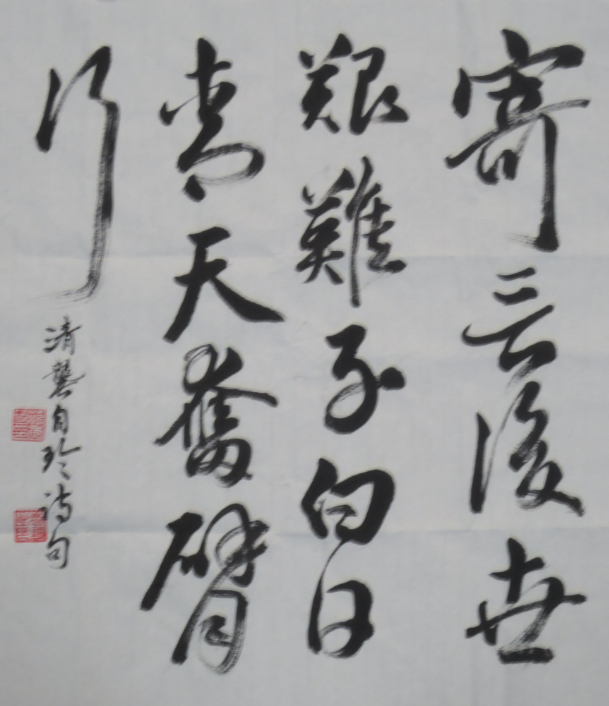 寄言後世
艱難子白日
青天奮臂
行
清龔自珍詩句